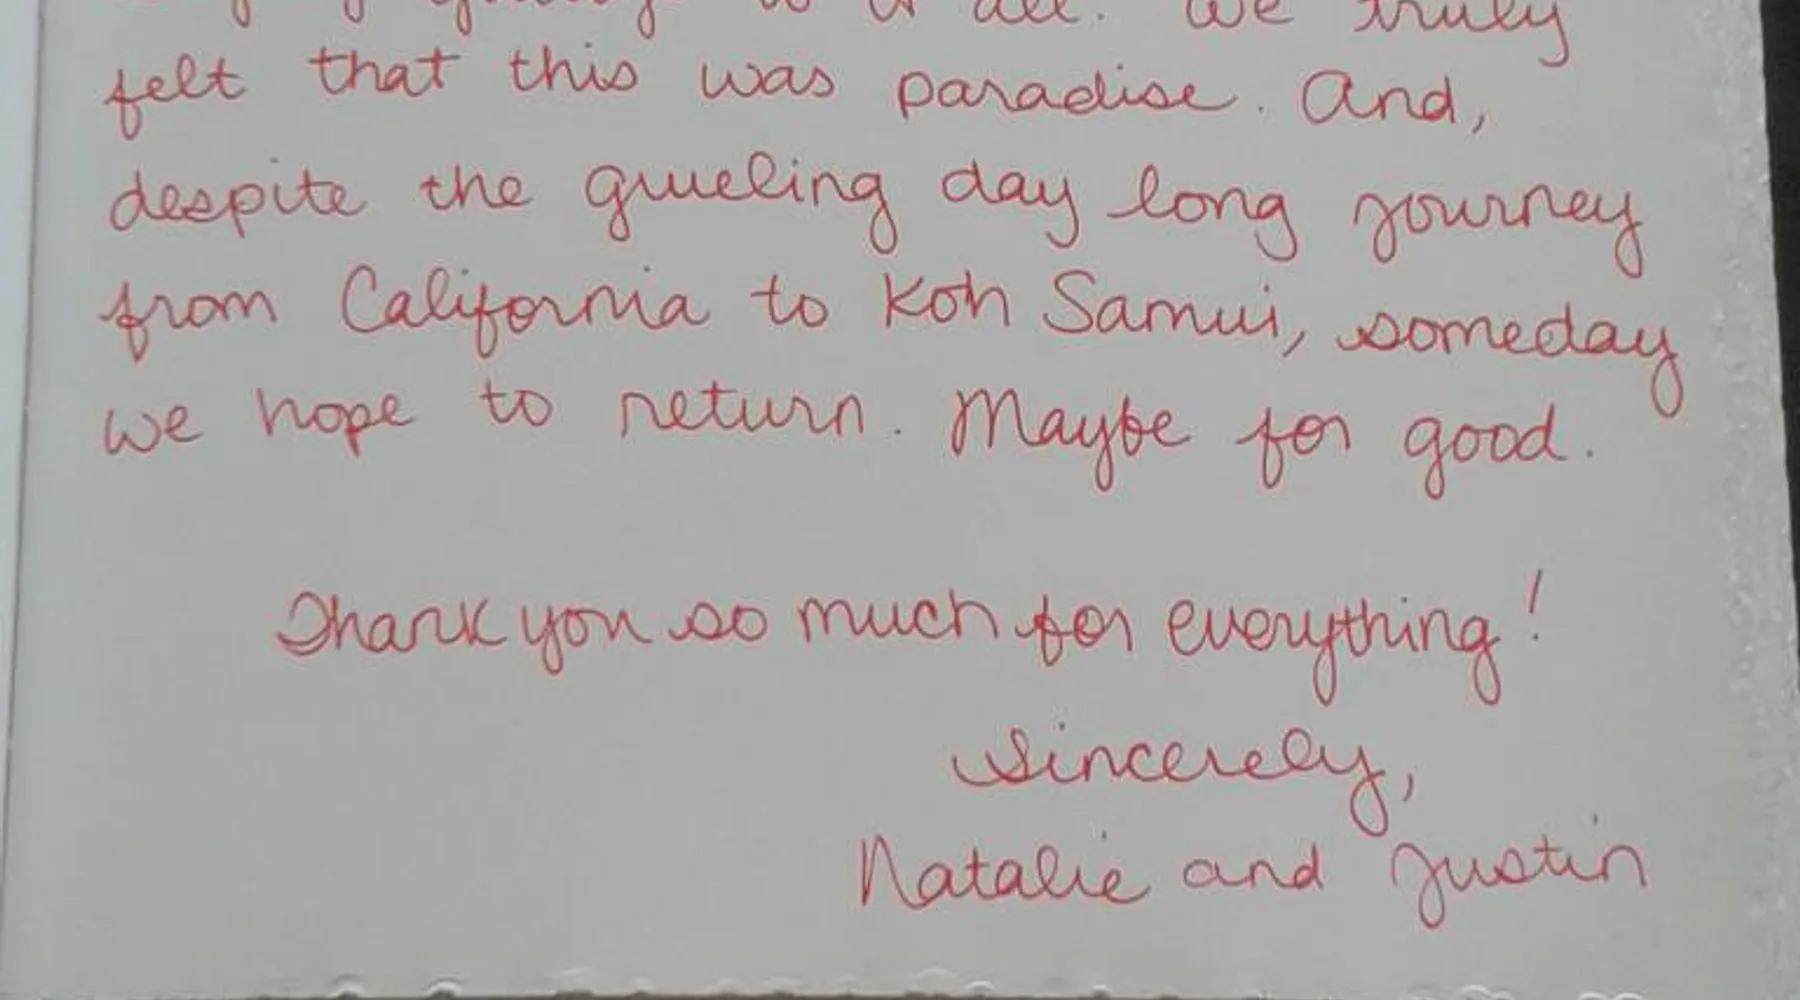 to it all. We truly
felt that this was paradise. And,
despite the grueling day long journey
from California to Koh Samui, someday
we hope to return. Maybe for good.
Thank you so much for everything!
Sincerely,
Natalie and Justin